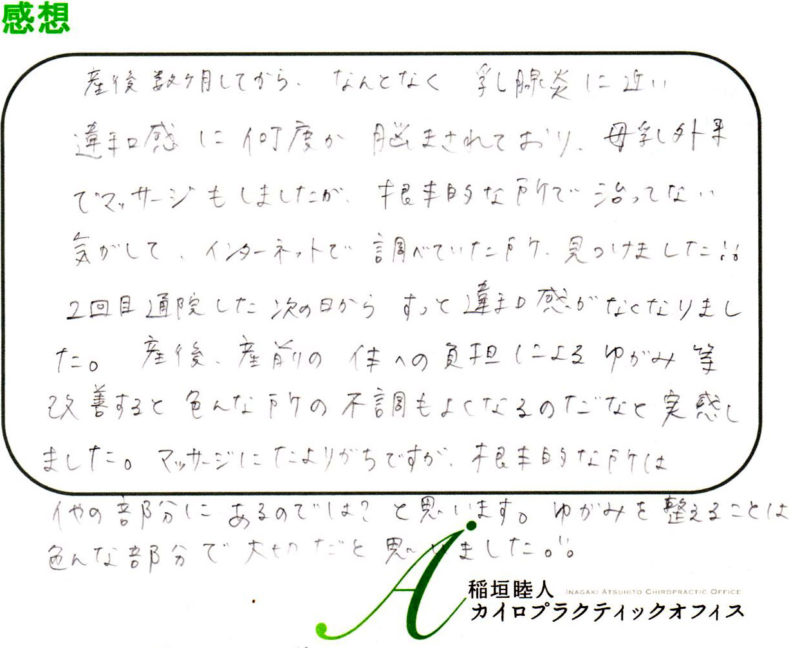 感想
産後数ヶ月してから、なんとなく 乳腺炎に近い
違和感に何度か 脳まされており、母乳外来
でマッサージもしましたが、根本的な所で 治ってない
気がして、インターネットで 調べていた所、見つけました!!
2回目通院した次の日から すっと違和感がなくなりまし
た。 産後、産前の 体への負担による ゆがみ 等
改善すると 色んな所の不調もよくなるのだなと実感し
ました。マッサージにたよりがちですが、根本的な所は
他の部分に あるのでは?と思います。ゆがみを整えることは
色んな部分で 大切だと思いました。!!
稲垣睦人 INAGAKI ATSUHITO CHIROPRACTIC OFFICE
カイロプラクティックオフィス